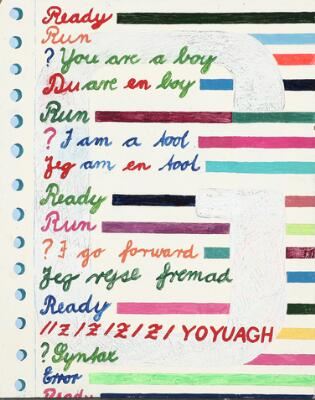 Ready
Run
? You are a boy
Du are en boy
Run
? I am a tool
Jeg am en tool
Ready
Run
? I go forward
Jeg rejse fremad
Ready
YOYUAGH
? Syntax
Error
Ready